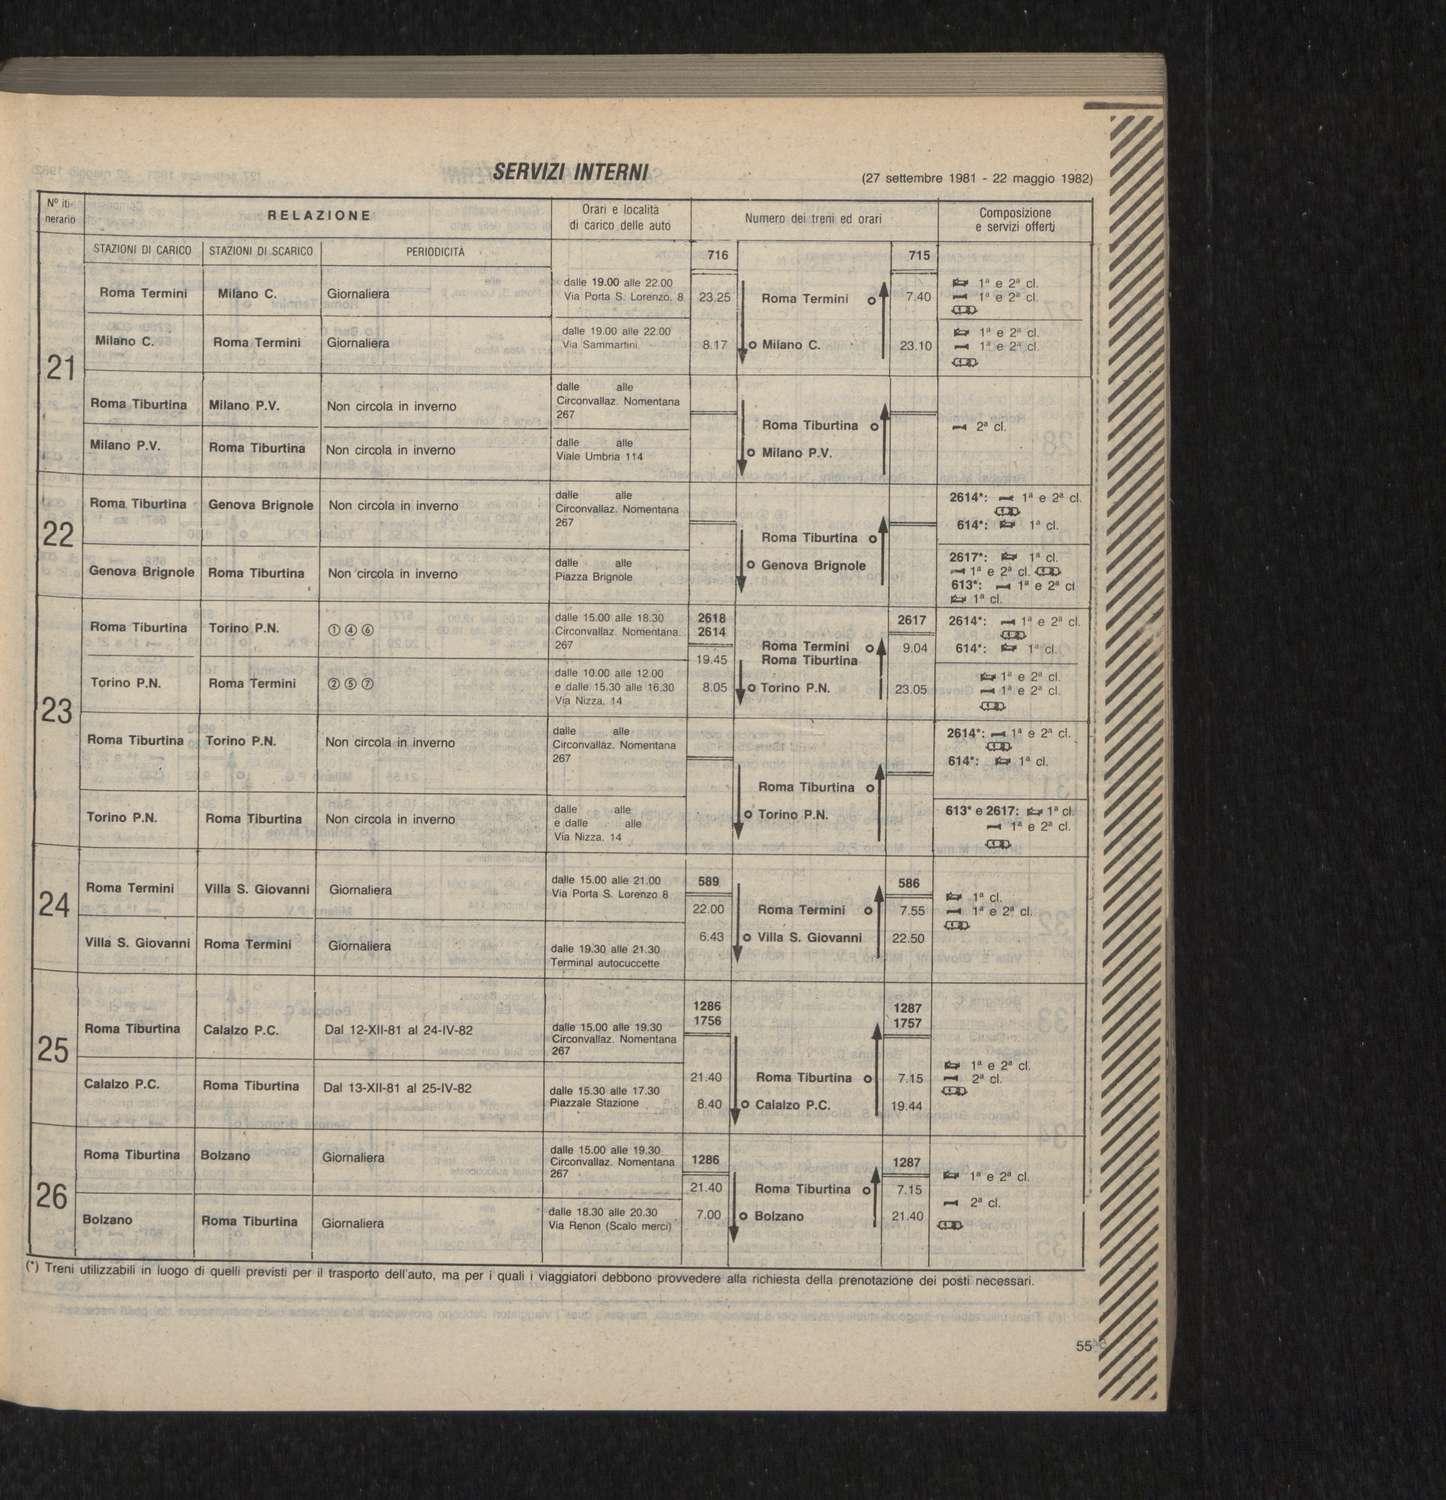 SERVIZI INTERNI
(27 settembre 1981 - 22 maggio 1982)
Nº iti-
nerario
RELAZIONE
Orari e località
di carico delle auto
Numero dei treni ed orari
Composizione
e servizi offerti
STAZIONI DI CARICO STAZIONI DI SCARICO PERIODICITÀ
716 715
21
Roma Termini Milano C. Giornaliera
dalle 19.00 alle 22.00
Via Porta S. Lorenzo, 8
23.25 Roma Termini 7.40
1ª e 2ª cl.
1ª e 2ª cl.
Milano C. Roma Termini Giornaliera
dalle 19.00 alle 22.00
Via Sammartini
8.17 Milano C. 23.10
1ª e 2ª cl.
1ª e 2ª cl.
Roma Tiburtina Milano P.V. Non circola in inverno
dalle alle
Circonvallaz. Nomentana
267
Roma Tiburtina
2ª cl.
Milano P.V. Roma Tiburtina Non circola in inverno
dalle alle
Viale Umbria 114
Milano P.V.
22
Roma Tiburtina Genova Brignole Non circola in inverno
dalle alle
Circonvallaz. Nomentana
267
Roma Tiburtina
2614*: 1ª e 2ª cl.
614*: 1ª cl.
Genova Brignole Roma Tiburtina Non circola in inverno
dalle alle
Piazza Brignole
Genova Brignole
2617*: 1ª cl.
1ª e 2ª cl.
613*: 1ª e 2ª cl
1ª cl.
23
Roma Tiburtina Torino P.N. ① ④ ⑥
dalle 15.00 alle 18.30
Circonvallaz. Nomentana
267
2618
2614
2617
19.45
Roma Termini
Roma Tiburtina
9.04
2614*: 1ª e 2ª cl.
614*: 1ª cl.
Torino P.N. Roma Termini ② ⑤ ⑦
dalle 10.00 alle 12.00
e dalle 15.30 alle 16.30
Via Nizza, 14
8.05 Torino P.N. 23.05
1ª e 2ª cl.
1ª e 2ª cl.
Roma Tiburtina Torino P.N. Non circola in inverno
dalle alle
Circonvallaz. Nomentana
267
Roma Tiburtina
2614*: 1ª e 2ª cl.
614*: 1ª cl.
Torino P.N. Roma Tiburtina Non circola in inverno
dalle alle
e dalle alle
Via Nizza, 14
Torino P.N.
613* e 2617: 1ª cl.
1ª e 2ª cl.
24
Roma Termini Villa S. Giovanni Giornaliera
dalle 15.00 alle 21.00
Via Porta S. Lorenzo 8
589 586
22.00 Roma Termini 7.55
1ª cl.
1ª e 2ª cl.
Villa S. Giovanni Roma Termini Giornaliera
dalle 19.30 alle 21.30
Terminal autocuccette
6.43 Villa S. Giovanni 22.50
25
Roma Tiburtina Calalzo P.C. Dal 12-XII-81 al 24-IV-82
dalle 15.00 alle 19.30
Circonvallaz. Nomentana
267
1286
1756
1287
1757
21.40 Roma Tiburtina 7.15
1ª e 2ª cl.
2ª cl.
Calalzo P.C. Roma Tiburtina Dal 13-XII-81 al 25-IV-82
dalle 15.30 alle 17.30
Piazzale Stazione
8.40 Calalzo P.C. 19.44
26
Roma Tiburtina Bolzano Giornaliera
dalle 15.00 alle 19.30
Circonvallaz. Nomentana
267
1286 1287
21.40 Roma Tiburtina 7.15
1ª e 2ª cl.
2ª cl.
Bolzano Roma Tiburtina Giornaliera
dalle 18.30 alle 20.30
Via Renon (Scalo merci)
7.00 Bolzano 21.40
(*) Treni utilizzabili in luogo di quelli previsti per il trasporto dell'auto, ma per i quali i viaggiatori debbono provvedere alla richiesta della prenotazione dei posti necessari.
55